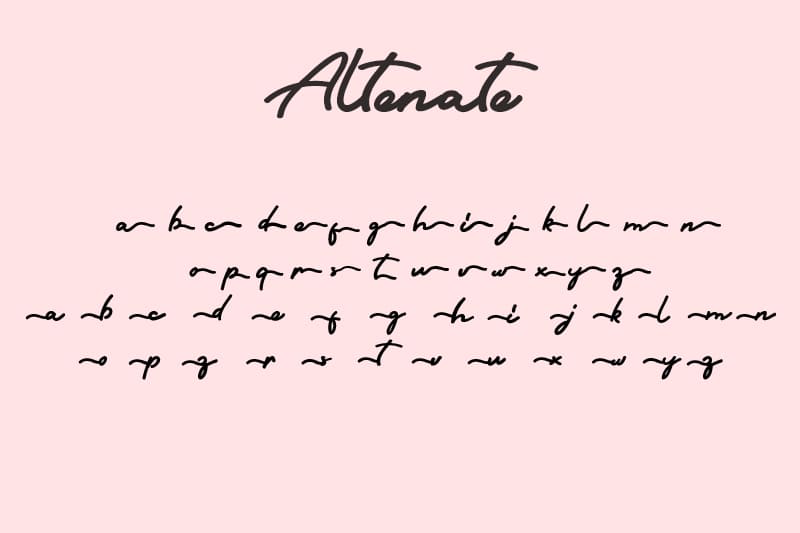 Altenate
a b c d e f g h i j k l m n
o p q r s t u v w x y z
a b c d e f g h i j k l m n
o p z r s t v u x w y z